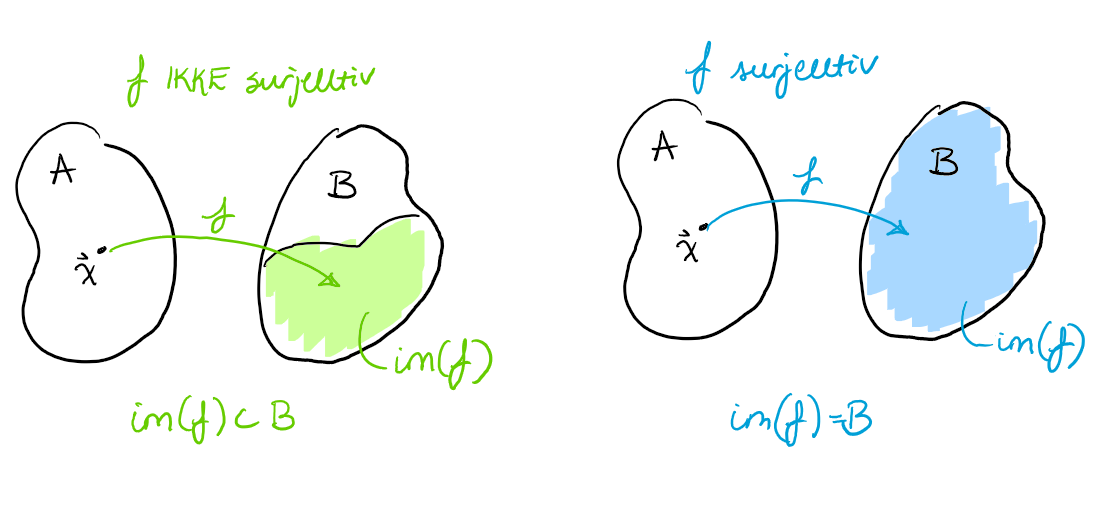 f IKKE surjektiv
A
B
f
x⃗
im(f)
im(f) ⊂ B
f surjektiv
A
B
f
x⃗
im(f)
im(f) = B